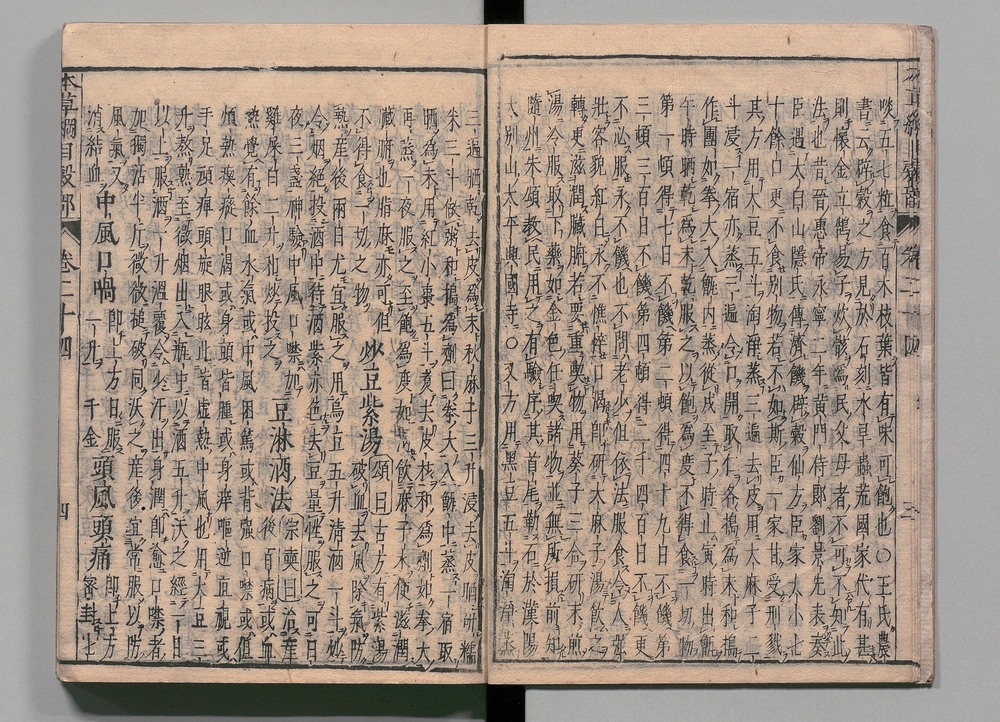 啖五七粒食百木枝葉皆有味可飽也○王氏農
書云辟穀之方見於石刻水旱蟲荒國家代有甚
則懷金立鵠易子炊骸爲民父母者不可不知此
法也昔晉惠帝永寧二年黄門侍郎劉景先表奏
臣遇太白山隱氏傳濟饑辟穀仙方臣家大小七
十餘口更不食別物若不如斯臣一家甘受刑戮
其方用大豆五斗淘淨蒸三遍去皮用大麻子三
斗浸一宿亦蒸三遍令口開取仁各搗爲末和搗
作團如拳大入甑内蒸從戌至子時止寅時出甑
午時晒乾爲末乾服之以飽爲度不得食一切物
第一頓得七日不饑第二頓得四十九日不饑第
三頓三百日不饑第四頓得二千四百日不饑更
不必服永不饑也不問老少但依法服食令人强
壯容貌紅白永不憔悴口渴卽研大麻子湯飲之
轉更滋潤臟腑若要重喫物用葵子三合研末煎
湯冷服取下藥如金色任喫諸物並無所損前知
隨州朱頌教民用之有驗序其首尾勒石於漢陽
大別山太平興國寺○又方用黒豆五斗淘淨蒸
三遍晒乾去皮爲末秋麻子三升浸去皮晒研糯
米三斗做粥和搗爲劑如拳大入甑中蒸一宿取
晒爲末用紅小棗五斗煮去皮核和爲劑如拳大
再蒸一夜服之至飽爲度如渴飲麻子水便滋潤
臟腑也脂麻亦可但不得食一切之物
炒豆紫湯 頌曰古方有紫湯
破血去風除氣防
熱産後兩日尤宜服之用烏豆五升清酒一斗炒
令烟絶投酒中待酒紫赤色去豆量性服之可日
夜三盞神驗中風口噤加
雞屎白二升和炒投之 豆淋酒法 宗奭曰治産
後百病或血
熱覺有餘血水氣或中風困篤或背强口噤或但
煩熱瘈瘲口渴或身頭皆腫或身痒嘔逆直視或
手足頑痺頭旋眼眩此皆虚熱中風也用大豆三
升熬熟至微烟出入瓶中以酒五升沃之經一日
以上服酒一升温覆令少汗出身潤卽愈口噤者
加獨活半斤微微搥破同沃之産後宜常服以防
風氣又
消結血 中風口喎 卽上方日服
一升千金 頭風頭痛 卽上方
密封七
本草綱目穀部 卷二十四 四